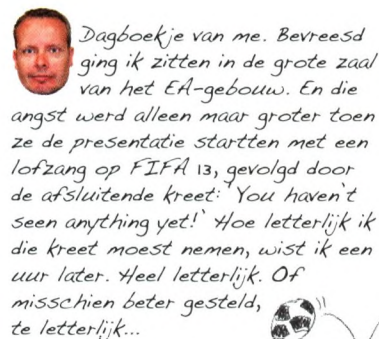 Dagboekje van me. Bevreesd
ging ik zitten in de grote zaal
van het EA-gebouw. En die
angst werd alleen maar groter toen
ze de presentatie startten met een
lofzang op FIFA 13, gevolgd door
de afsluitende kreet: 'You haven't
seen anything yet!' Hoe letterlijk ik
die kreet moest nemen, wist ik een
uur later. Heel letterlijk. Of
misschien beter gesteld,
te letterlijk...